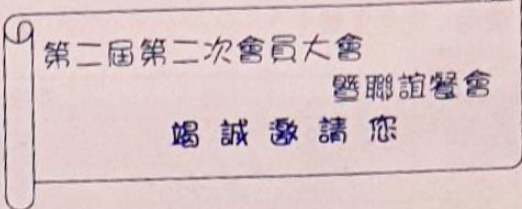 第二屆第二次會員大會
暨聯誼餐會
竭誠邀請您